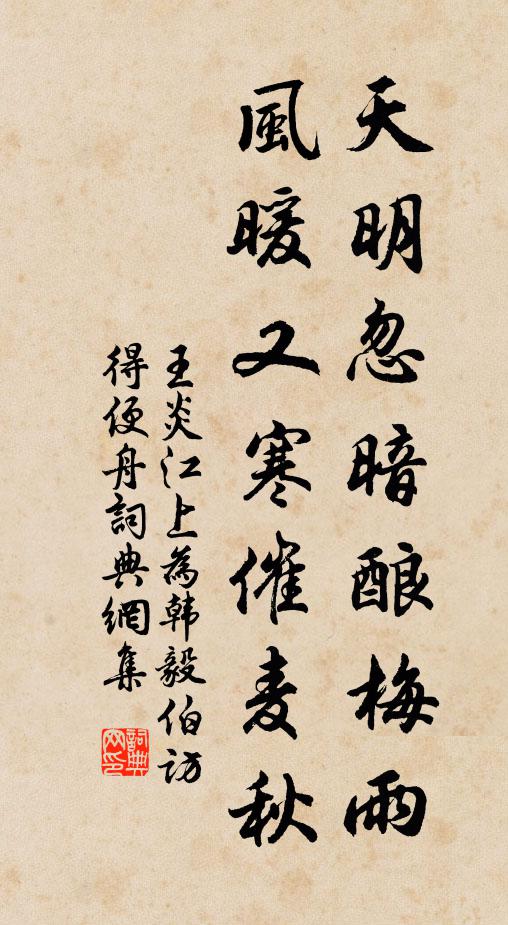 天明忽暗酿梅雨
風暖又寒催麦秋
王炎江上為韩毅伯访
得便舟詞典網集
詞典网印